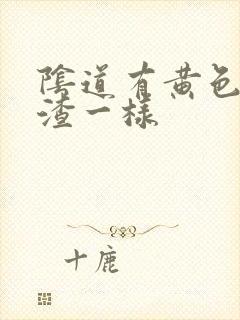 陰道有黄色
渣一様
十鹿